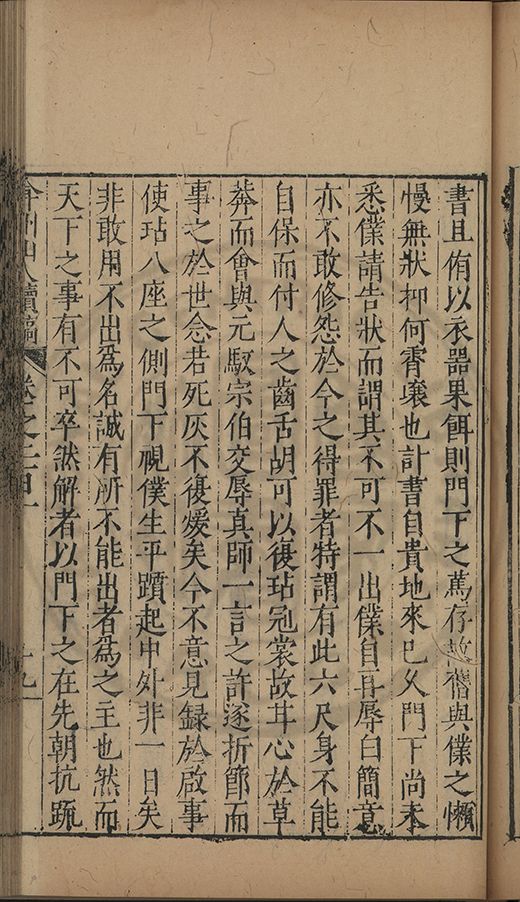 書且侑以衣器果餌則門下之薦存故舊與僕之懶
慢無狀抑何霄壤也計書自貴地來已久門下尚未
悉僕請告狀而謂其不可不一出僕自再辱白簡意
亦不敢修怨於今之得罪者特謂有此六尺身不能
自保而付人之齒舌胡可以復玷冠裳故耳心於草
莽而會與元馭宗伯交辱真師一言之許遂折節而
事之於世念若死灰不復煖矣今不意見録於啟事
使玷八座之側門下視僕生平躓起中外非一日矣
非敢用不出爲名誠有所不能出者為之主也然而
天下之事有不可卒然解者以門下之在先朝抗疏
弇州山人續稿 卷之二百一
十九